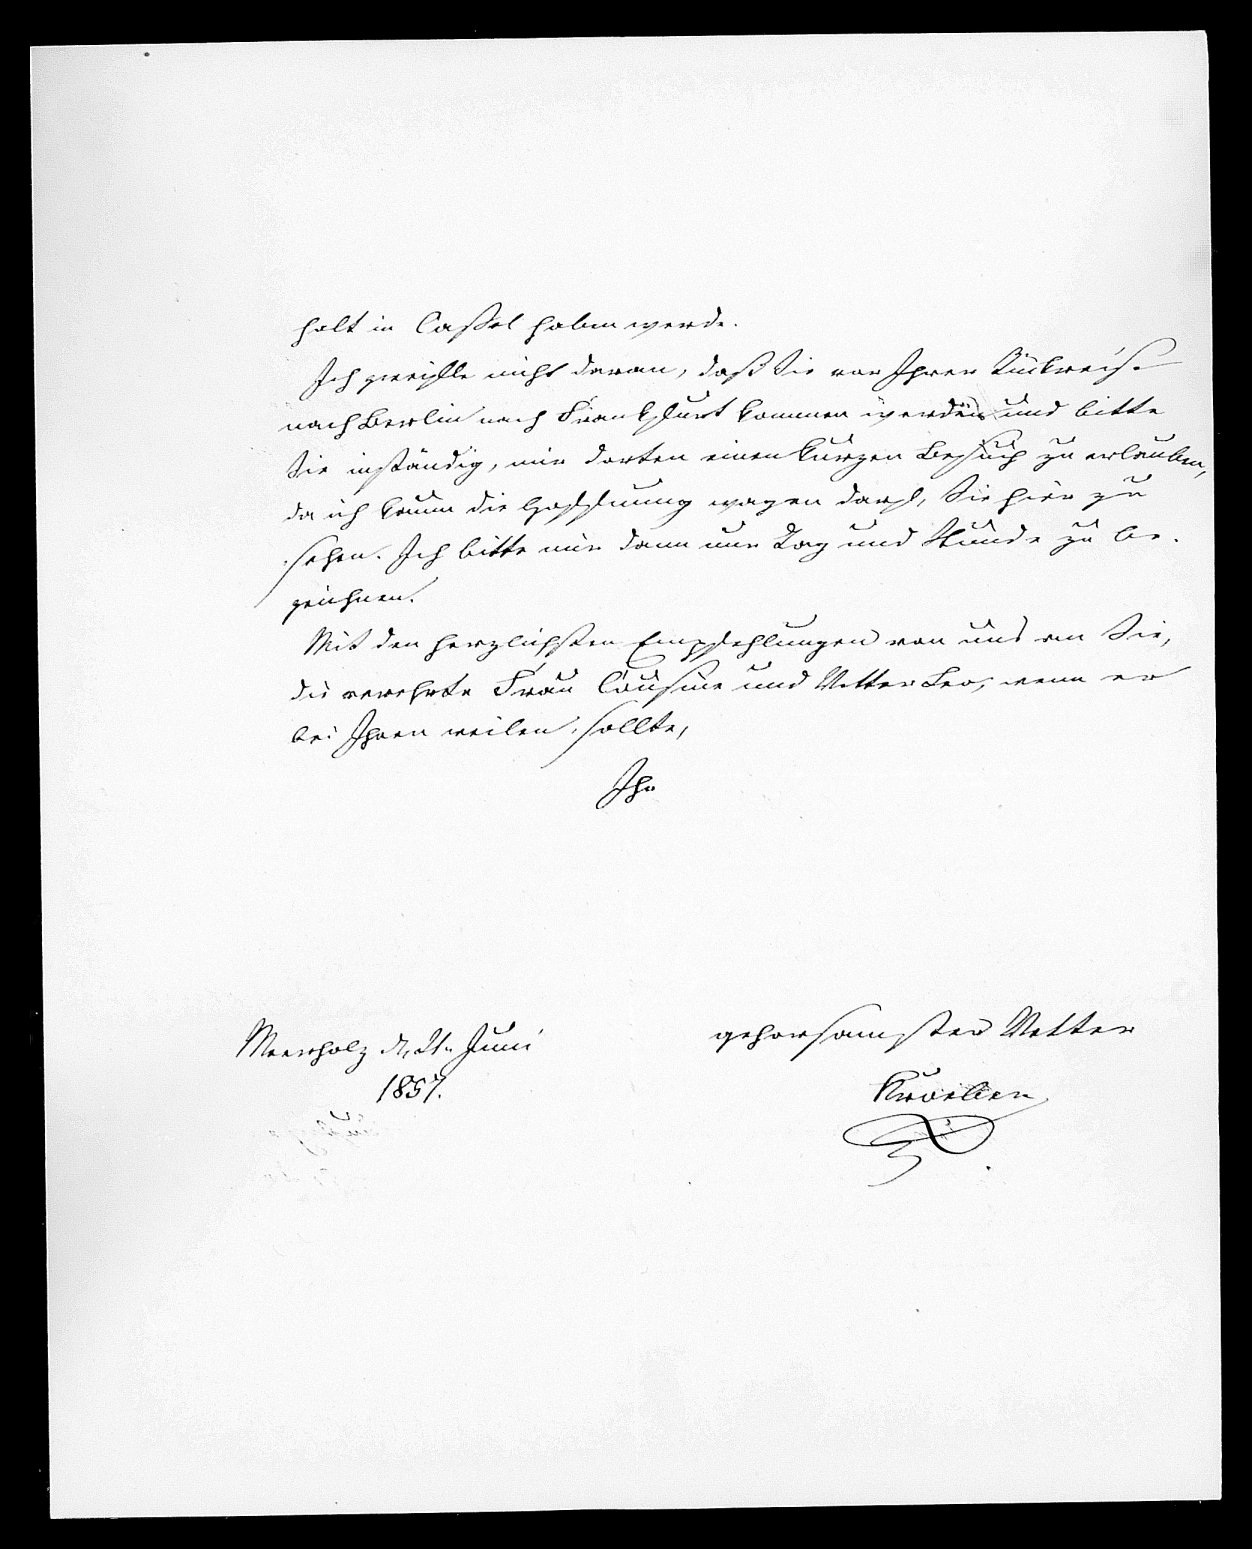 halt in Cassel haben werde.
Ich zweifle nicht daran, daß Sie vor Ihrer Rückreise
nach Berlin nach Frankfurt kommen werden und bitte
Sie inständig, mir dorten einen kurzen Besuch zu erlauben,
da ich kaum die Hoffnung wagen darf, Sie hier zu
sehen. Ich bitte mir dann nur Tag und Stunde zu be-
zeichnen.
Mit den herzlichsten Empfehlungen von uns an Sie,
die verehrte Frau Cousine und Vetter Leo, wenn er
bei Ihnen weilen sollte,
Ihr
gehorsamster Vetter
Meerholz d. 21. Juni
1857.